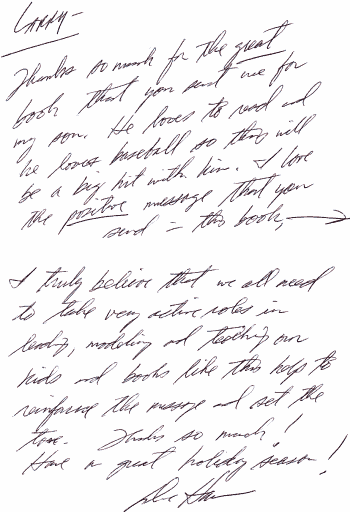 LARRY-
Thanks so much for the great
book that you sent me for
my son. He loves to read and
he loves baseball so this will
be a big hit with him. I love
the positive message that you
send = this book, →
I truly believe that we all need
to take very active roles in
leading, modeling and teaching our
kids and books like this help to
reinforce the message and set the
tone. Thanks so much!
Have a great holiday season!